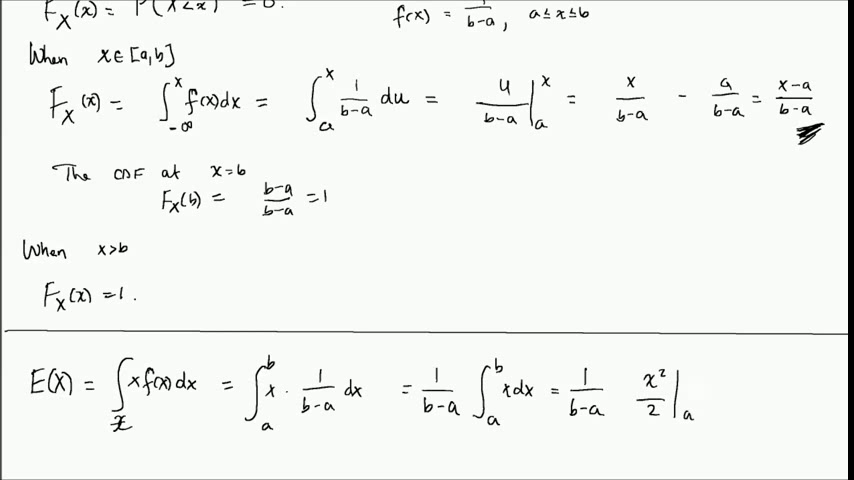 F_X(x) = P(X<x) = 0.
f(x) = 1/(b-a), a≤x≤b
When x∈[a,b]
F_X(x) = ∫_{-∞}^{x} f(x)dx = ∫_{a}^{x} 1/(b-a) du = u/(b-a) |_{a}^{x} = x/(b-a) - a/(b-a) = (x-a)/(b-a)
The CDF at x=b
F_X(b) = (b-a)/(b-a) = 1
When x>b
F_X(x) = 1.
E(X) = ∫_{x} x f(x) dx = ∫_{a}^{b} x · 1/(b-a) dx = 1/(b-a) ∫_{a}^{b} x dx = 1/(b-a) x²/2 |_{a}